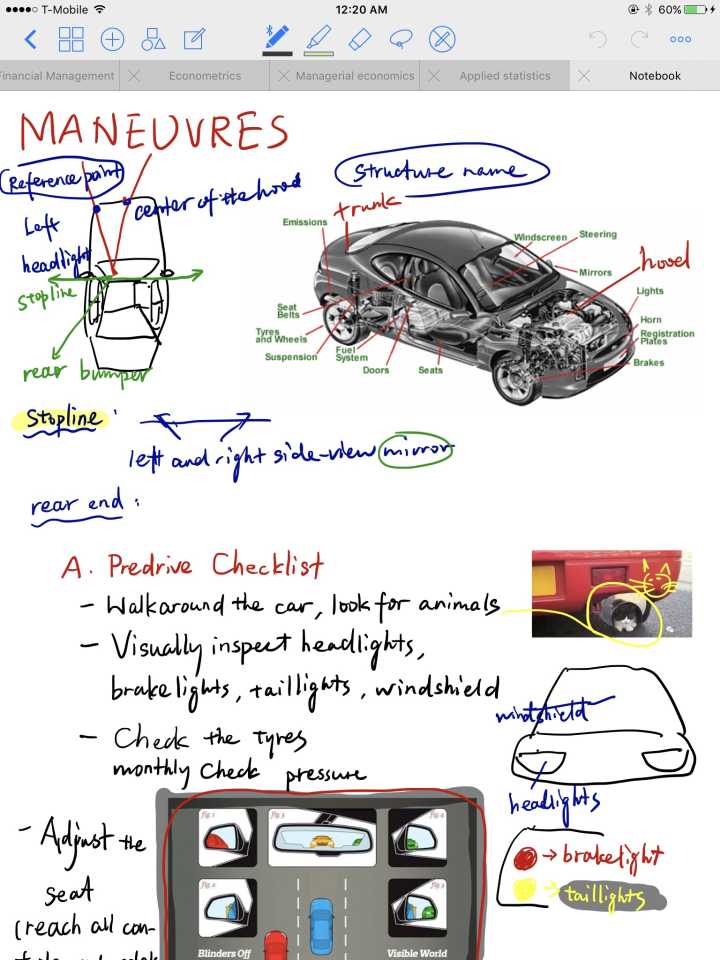 T-Mobile
12:20 AM
60%
Financial Management
Econometrics
Managerial economics
Applied statistics
Notebook
MANEUVRES
Reference point
center of the hood
Left
headlight
stopline
rear bumper
Structure name
trunk
hood
Emissions
Windscreen
Steering
Mirrors
Lights
Horn
Registration
Plates
Brakes
Seat
Belts
Tyres
and Wheels
Suspension
Fuel
System
Doors
Seats
Stopline:
left and right side-view mirror
rear end:
A. Predrive Checklist
- Walkaround the car, look for animals
- Visually inspect headlights,
brakelights, taillights, windshield
- Check the tyres
monthly check pressure
windshield
headlights
brakelight
taillights
- Adjust the
seat
(reach all con-
fig 1
fig 3
fig 4
fig 2
Blinders Off
Visible World